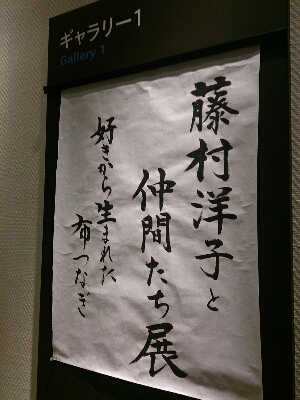 ギャラリー1
Gallery 1
藤村洋子と
仲間たち展
好きから生まれた
布つなぎ